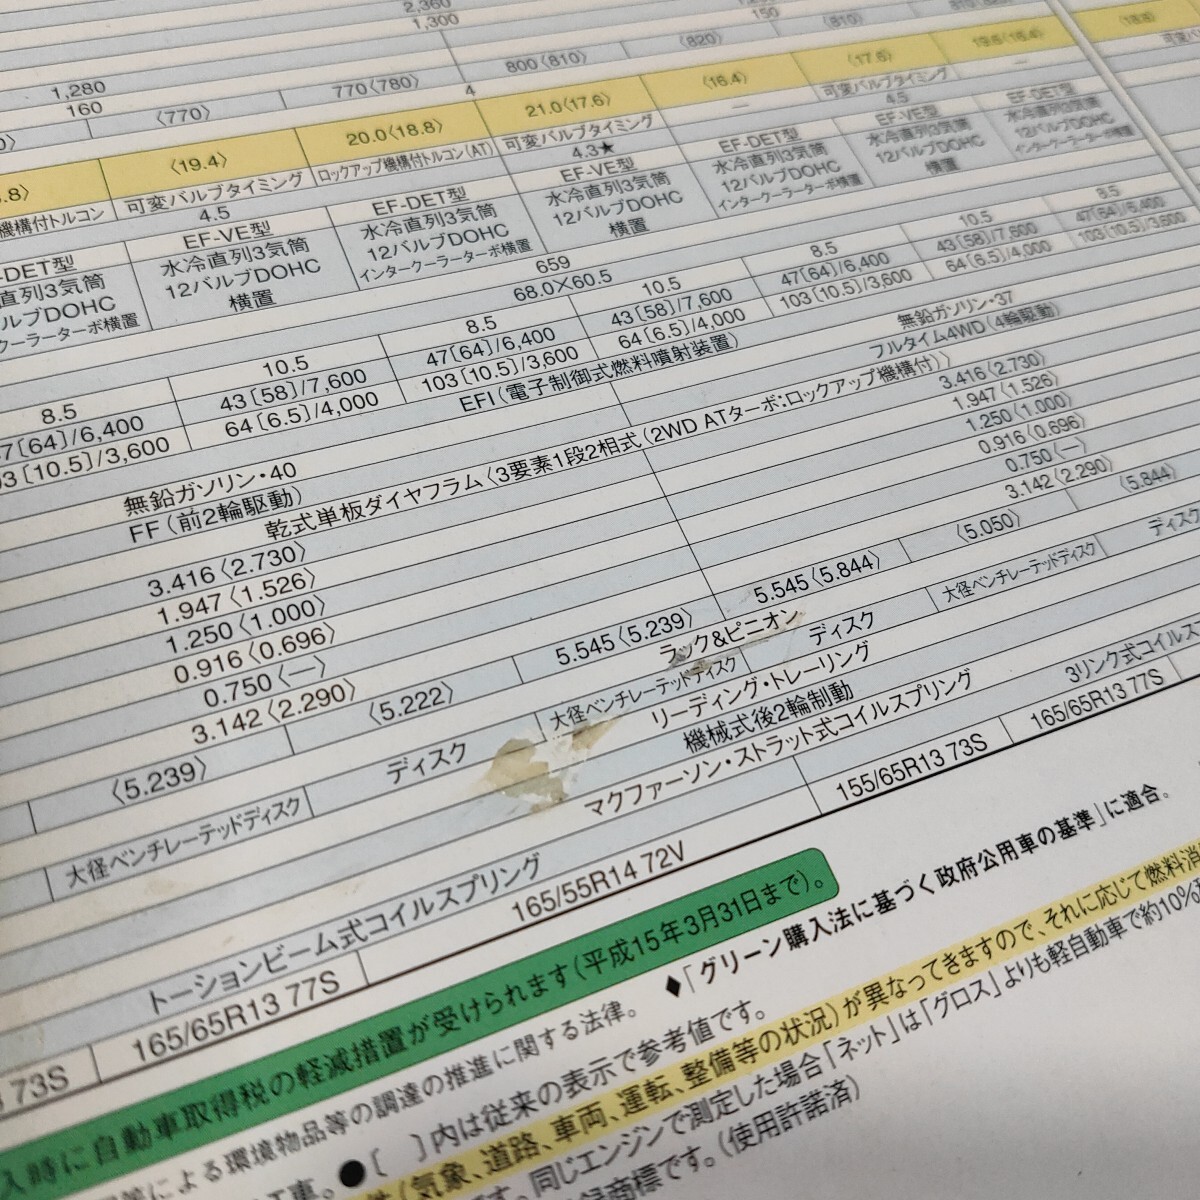 2,360
1,300
150
〈810〉
1,280
160
770〈780〉
800〈810〉
〈820〉
〈770〉
4
.8〉
〈19.4〉
20.0〈18.8〉
21.0〈17.6〉
〈16.4〉
〈17.6〉
機構付トルコン
可変バルブタイミング
ロックアップ機構付トルコン(AT)
可変バルブタイミング
—
可変バルブタイミング
—
4.5
4.3★
4.5
-DET型
EF-VE型
EF-DET型
EF-VE型
EF-DET型
EF-VE型
EF-DET型
直列3気筒
水冷直列3気筒
水冷直列3気筒
水冷直列3気筒
水冷直列3気筒
水冷直列3気筒
水冷直列3気筒
ルブDOHC
12バルブDOHC
12バルブDOHC
12バルブDOHC
12バルブDOHC
12バルブDOHC
12バルブDOHC
クーラーターボ横置
横置
インタークーラーターボ横置
横置
インタークーラーターボ横置
横置
インタークーラーターボ横置
659
68.0×60.5
8.5
10.5
8.5
10.5
8.5
10.5
8.5
7[64]/6,400
43[58]/7,600
47[64]/6,400
43[58]/7,600
47[64]/6,400
43[58]/7,600
47[64]/6,400
03[10.5]/3,600
64[6.5]/4,000
103[10.5]/3,600
64[6.5]/4,000
103[10.5]/3,600
64[6.5]/4,000
103[10.5]/3,600
EFI(電子制御式燃料噴射装置)
無鉛ガソリン・40
無鉛ガソリン・37
FF(前2輪駆動)
フルタイム4WD(4輪駆動)
乾式単板ダイヤフラム〈3要素1段2相式(2WD ATターボ:ロックアップ機構付)〉
3.416〈2.730〉
3.416〈2.730〉
1.947〈1.526〉
1.947〈1.526〉
1.250〈1.000〉
1.250〈1.000〉
0.916〈0.696〉
0.916〈0.696〉
0.750〈—〉
0.750〈—〉
3.142〈2.290〉
3.142〈2.290〉
〈5.239〉
〈5.222〉
5.545〈5.239〉
5.545〈5.844〉
〈5.050〉
〈5.844〉
ラック&ピニオン
大径ベンチレーテッドディスク
ディスク
大径ベンチレーテッドディスク
ディスク
大径ベンチレーテッドディスク
ディスク
リーディング・トレーリング
機械式後2輪制動
マクファーソン・ストラット式コイルスプリング
トーションビーム式コイルスプリング
3リンク式コイルス
73S
165/65R13 77S
165/55R14 72V
155/65R13 73S
165/65R13 77S
入時に自動車取得税の軽減措置が受けられます(平成15年3月31日まで)。
等による環境物品等の調達の推進に関する法律。 ◆「グリーン購入法に基づく政府公用車の基準」に適合。
工車。 ●[ ]内は従来の表示で参考値です。
件(気象、道路、車両、運転、整備等の状況)が異なってきますので、それに応じて燃料消
です。同じエンジンで測定した場合「ネット」は「グロス」よりも軽自動車で約10%
録商標です。(使用許諾済)